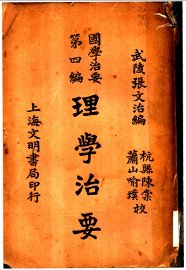 武陵張文治編
杭縣陳棠
蕭山喻璞
校
國學治要
第四編
理學治要
上海文明書局印行